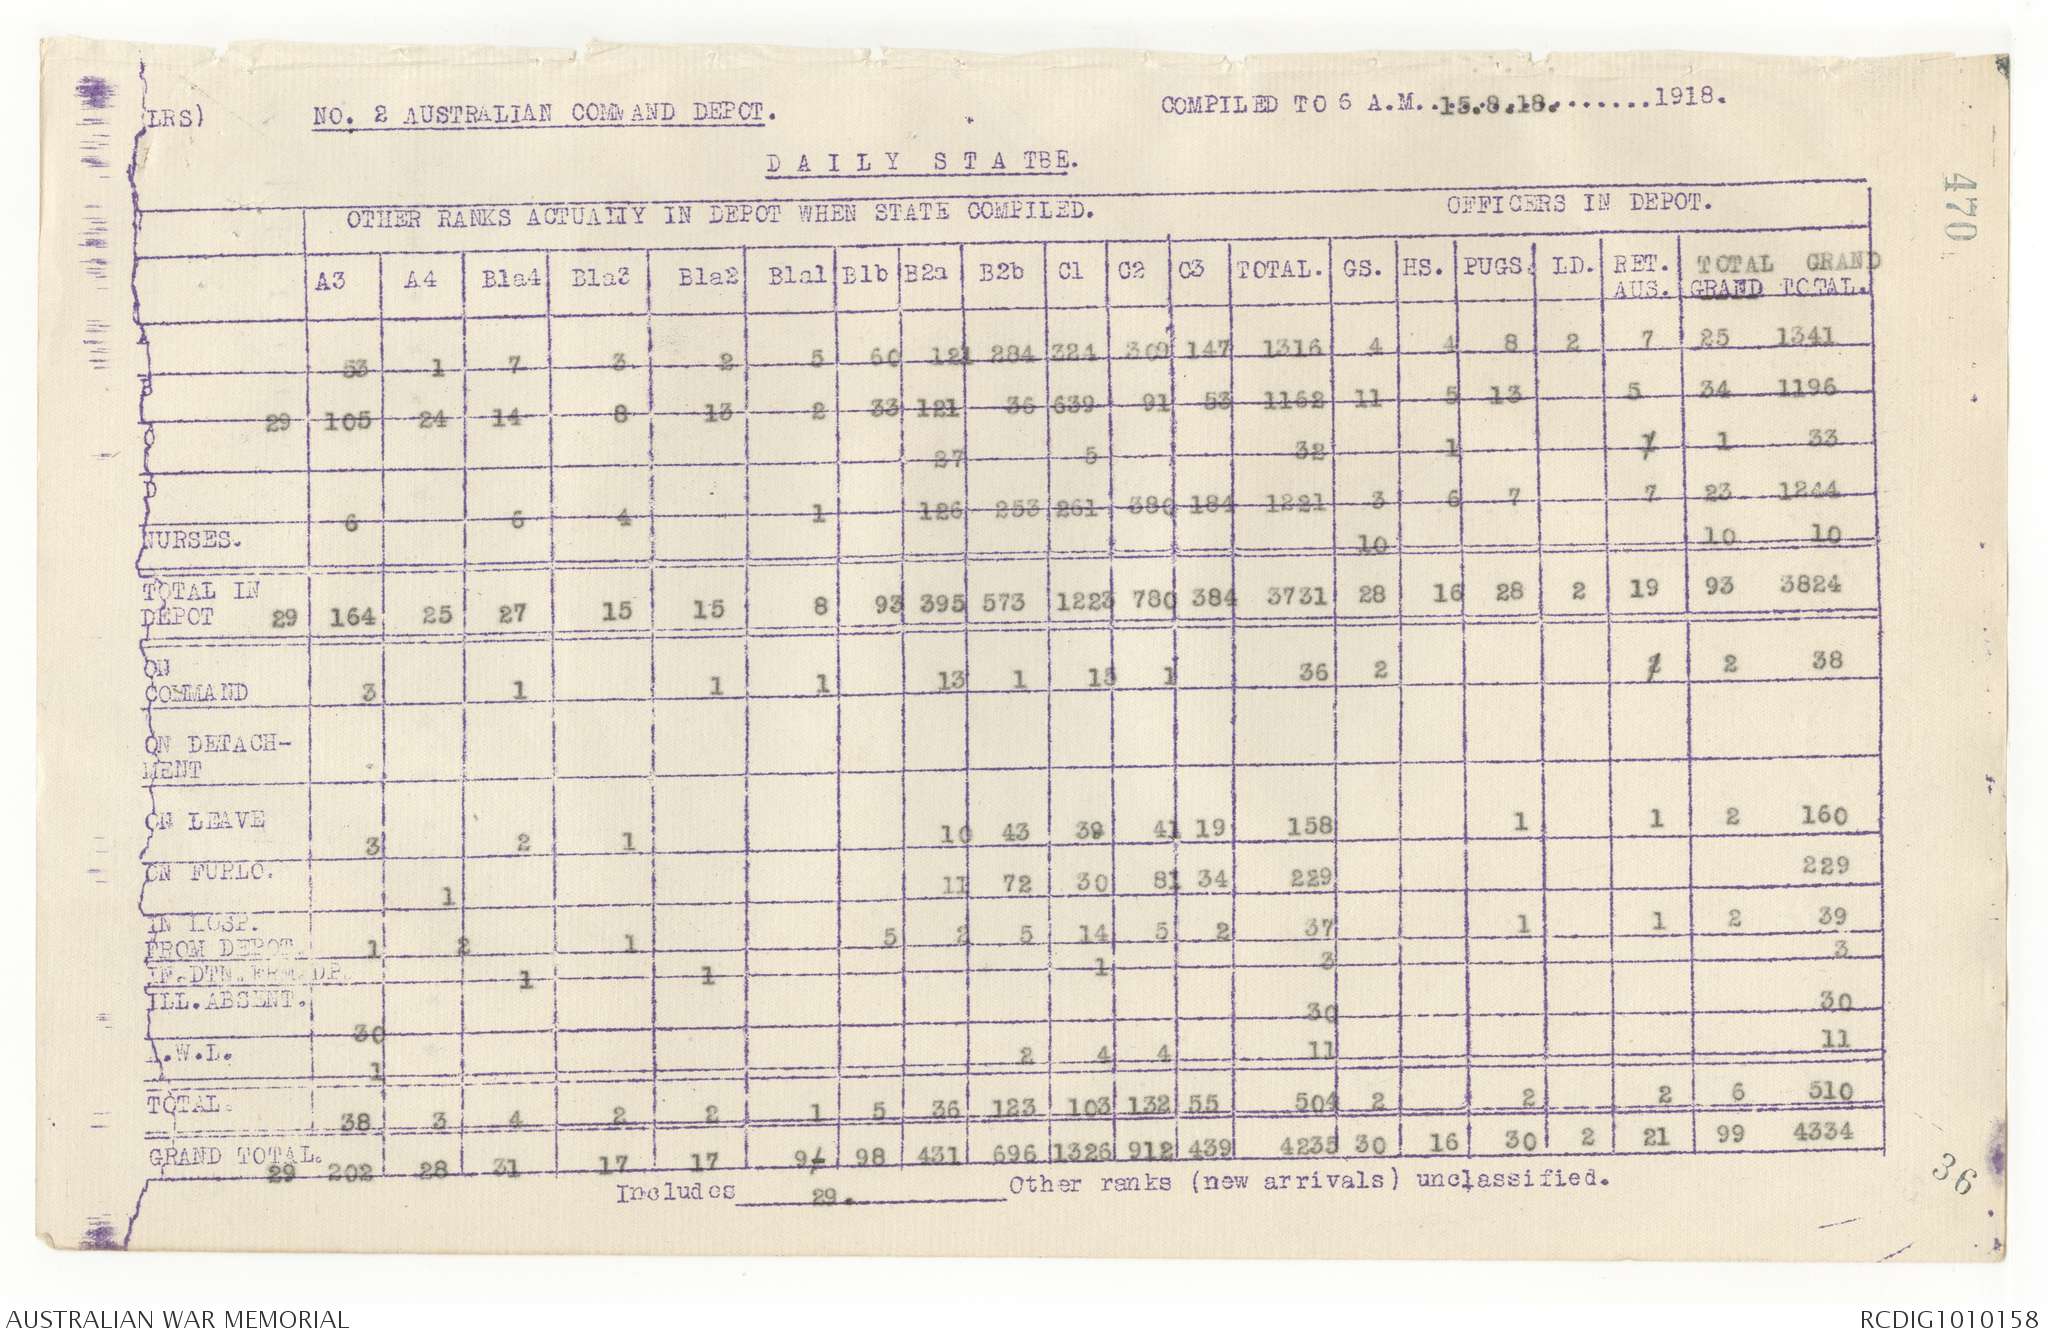 LRS)
NO. 2 AUSTRALIAN COMMAND DEPOT.
COMPILED TO 6 A.M. 15.8.18. 1918.
DAILY STATBE.
470
OTHER RANKS ACTUALLY IN DEPOT WHEN STATE COMPILED. OFFICERS IN DEPOT.
A3 A4 B1a4 B1a3 B1a2 B1a1 B1b B2a B2b C1 C2 C3 TOTAL. GS. HS. PUGS. LD. RET. AUS. TOTAL GRAND
GRAND TOTAL.
53 1 7 3 2 5 60 121 284 324 309 147 1316 4 4 8 2 7 25 1341
29 105 24 14 8 13 2 33 121 36 639 91 53 1162 11 5 13 5 34 1196
27 5 32 1 1 33
6 6 4 1 126 253 261 380 184 1221 3 6 7 7 23 1244
NURSES. 10 10 10
TOTAL IN
DEPOT 29 164 25 27 15 15 8 93 395 573 1223 780 384 3731 28 16 28 2 19 93 3824
ON
COMMAND 3 1 1 1 13 1 15 1 36 2 2 38
ON DETACH-
MENT
ON LEAVE 3 2 1 10 43 39 41 19 158 1 1 2 160
ON FURLO. 1 11 72 30 81 34 229 229
IN HOSP.
FROM DEPOT. 1 2 1 5 2 5 14 5 2 37 1 1 2 39
IF.DTN.FRM.DP. 1 1 1 3 3
ILL.ABSENT. 30 30 30
.W.L. 1 2 4 4 11 11
TOTAL. 38 3 4 2 2 1 5 36 123 103 132 55 504 2 2 2 6 510
GRAND TOTAL. 29 202 28 31 17 17 9 98 431 696 1326 912 439 4235 30 16 30 2 21 99 4334
Includes 29. Other ranks (new arrivals) unclassified.
36
AUSTRALIAN WAR MEMORIAL
RCDIG1010158